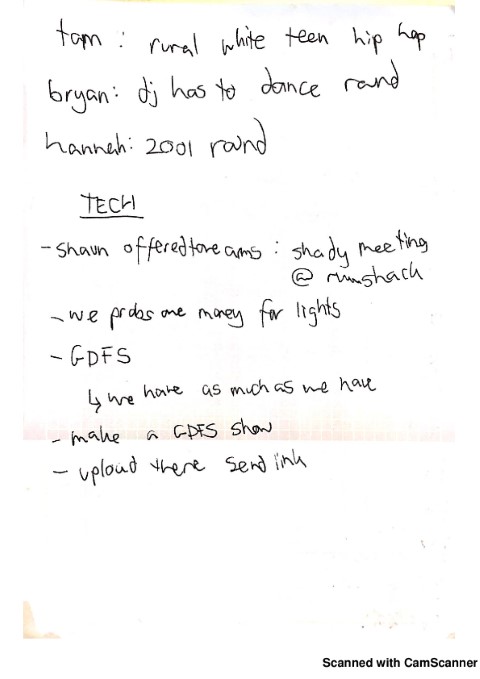 tom : rural white teen hip hop
bryan: dj has to dance round
hannah: 2001 round
TECH
- shaun offered : shady meeting
@ rumshack
- we probs owe money for lights
- GDFS
↳ we have as much as we have
- make a GDFS show
- upload there send link
Scanned with CamScanner